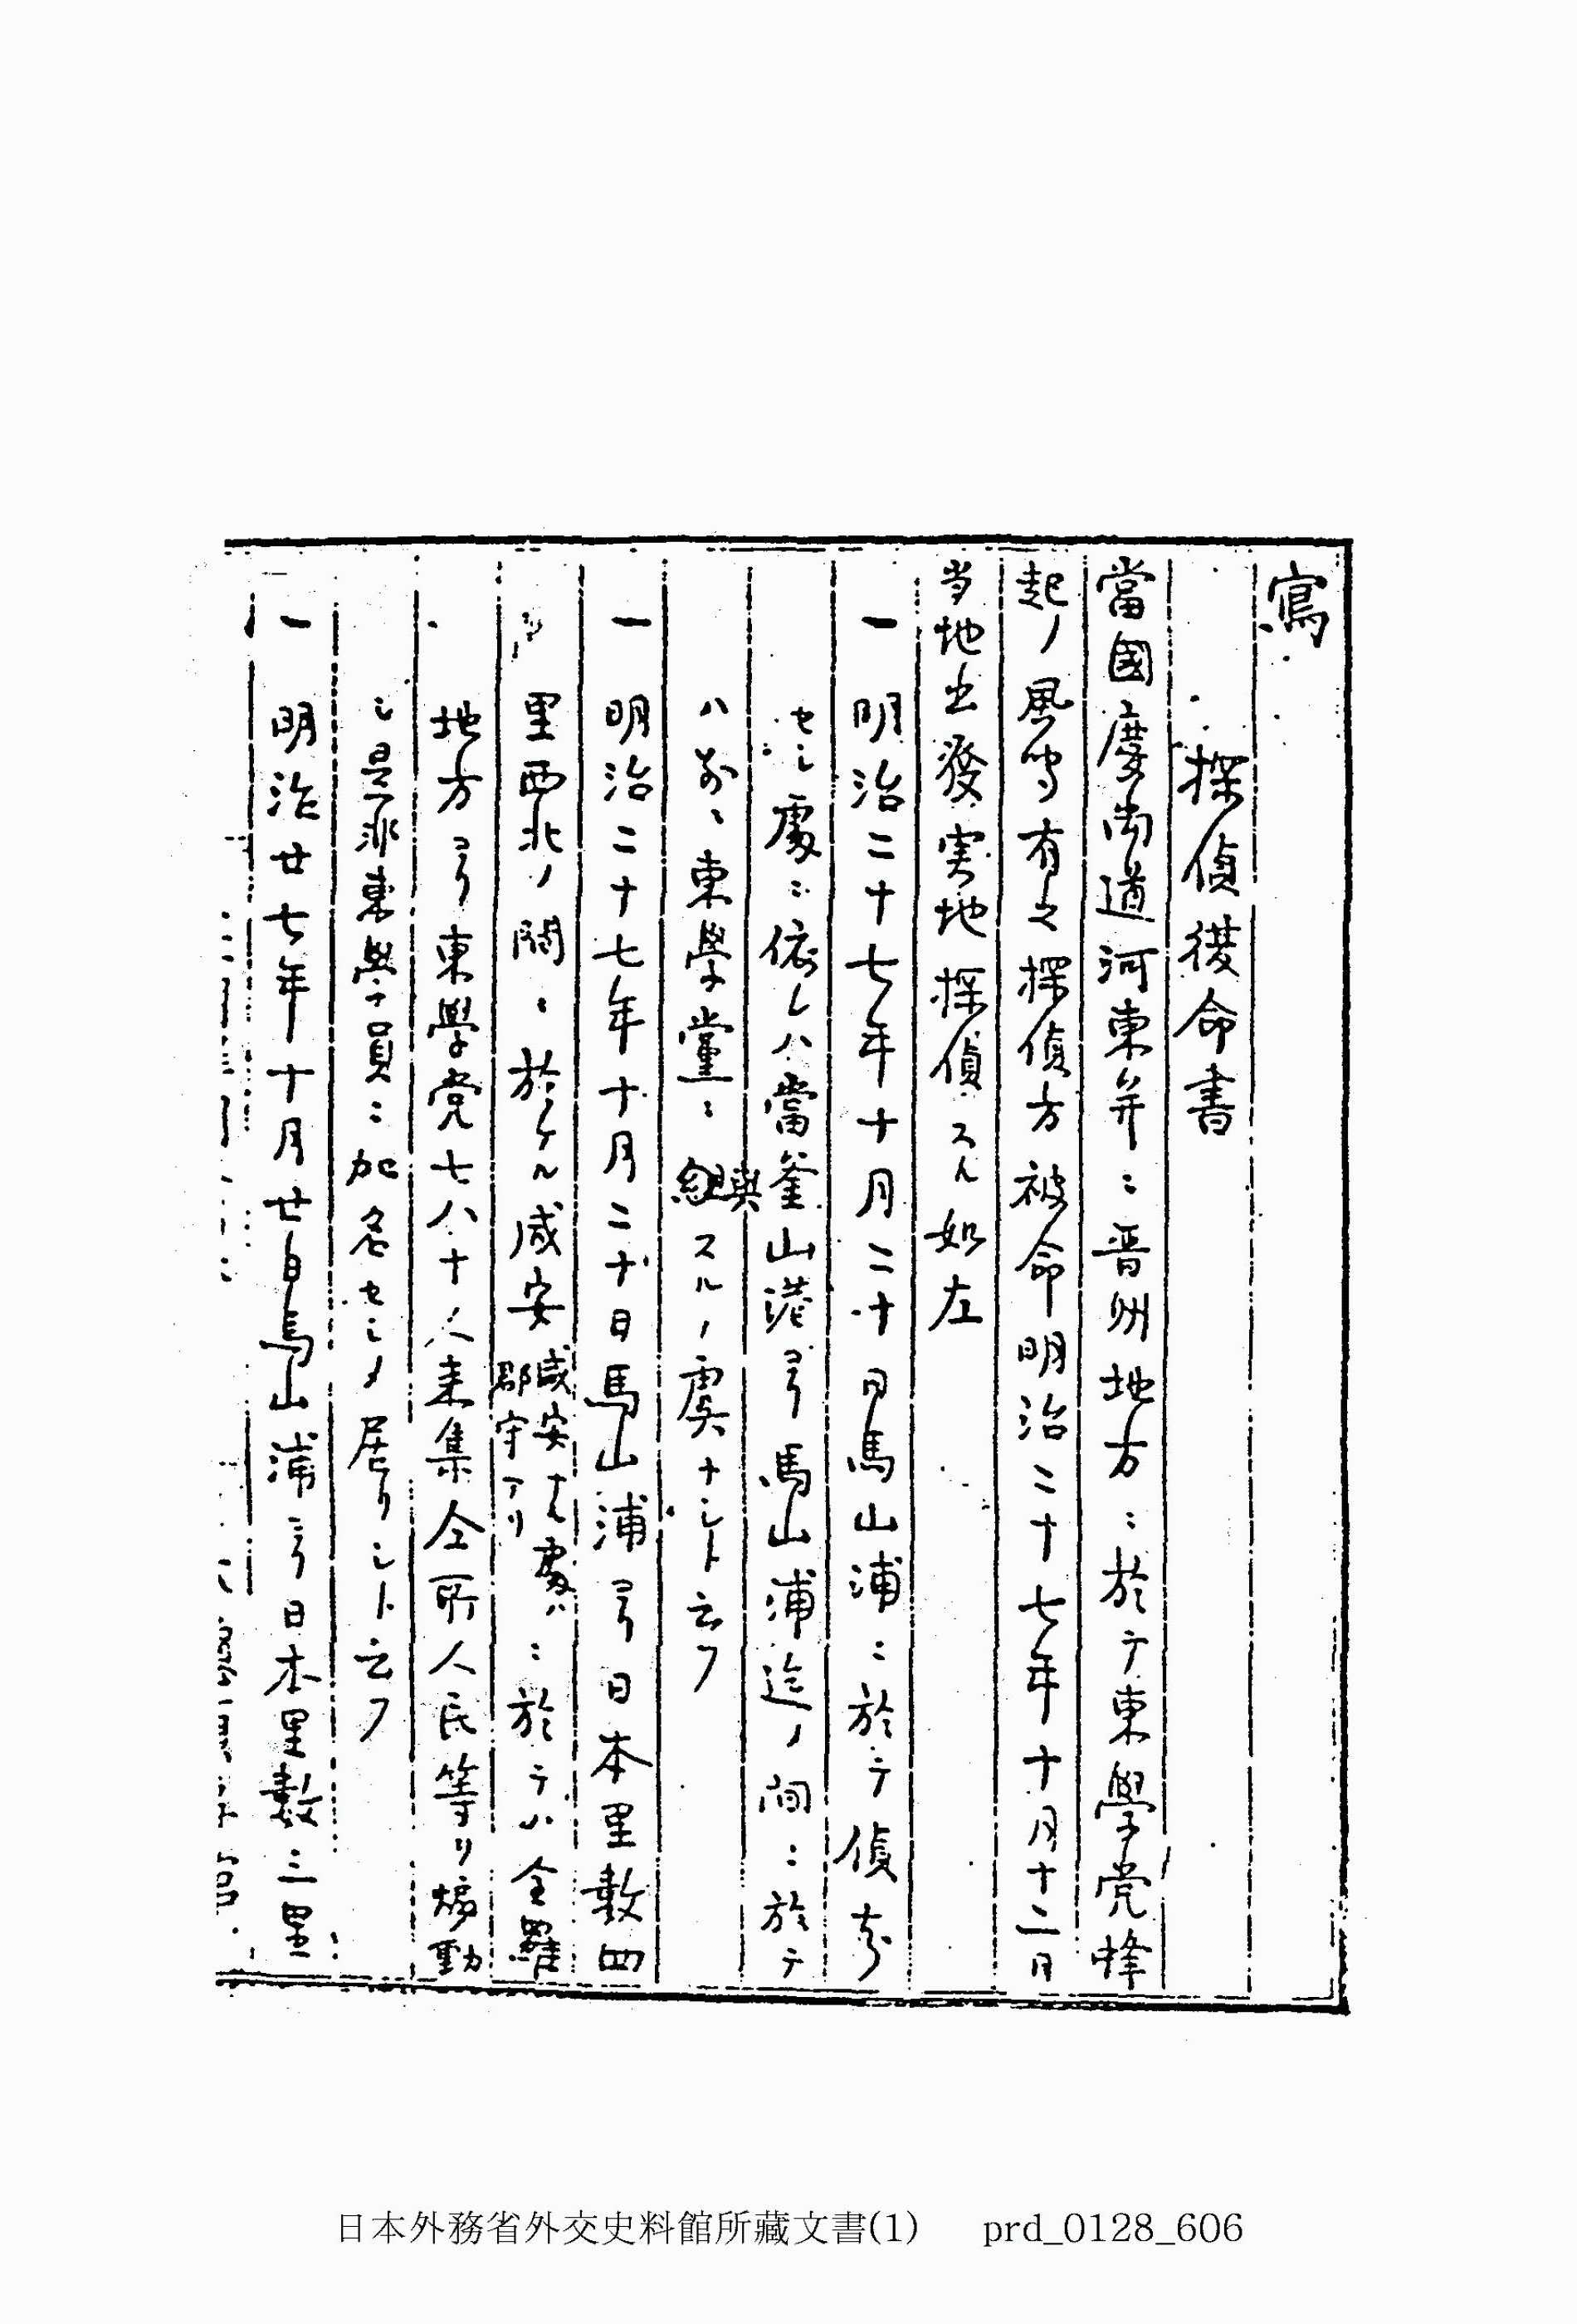 寫
探偵復命書
當國慶尚道河東并ニ晋州地方ニ於テ東學党蜂
起ノ風聞有之探偵方被命明治二十七年十月十二日
当地出發実地探偵スル如左
一 明治二十七年十月二十日馬山浦ニ於テ偵察
セシ處ニ依レハ當釜山港ヨリ馬山浦迄ノ間ニ於テ
ハ別ニ東學黨ニ與スルノ虞ナシト云フ
一 明治二十七年十月二十日馬山浦ヨリ日本里数四
里西北ノ間ニ於ケル咸安咸安ナル處ハ郡守アリニ於テハ全羅
地方ヨリ東學党七八十人来集仝所人民等ヲ煽動
シ是非東學員ニ加名セシメ居リシト云フ
一 明治廿七年十月廿日馬山浦ヨリ日本里數三里
日本外務省外交史料館所藏文書(1) prd_0128_606